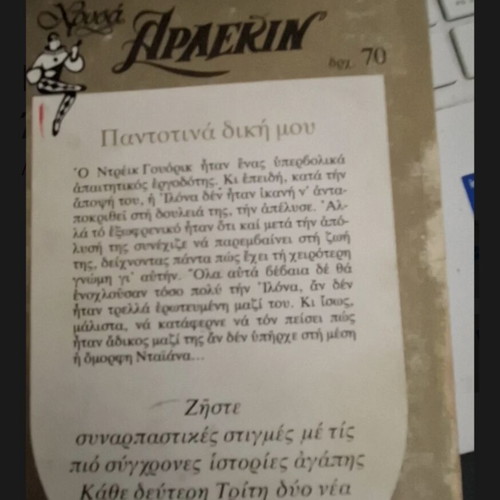 Χρυσά
ΑΡΛΕΚΙΝ
δρχ. 70
Παντοτινά δική μου
Ὁ Ντρέικ Γουόρικ ἦταν ἕνας ὑπερβολικά
ἀπαιτητικός ἐργοδότης. Κι ἐπειδή, κατά τήν
ἄποψή του, ἡ Ἰλόνα δέν ἦταν ἱκανή ν' ἀντα-
ποκριθεῖ στή δουλειά της, τήν ἀπέλυσε. Ἀλ-
λά τό ἐξωφρενικό ἦταν ὅτι καί μετά τήν ἀπό-
λυσή της συνέχιζε νά παρεμβαίνει στή ζωή
της, δείχνοντας πάντα πώς ἔχει τή χειρότερη
γνώμη γι' αὐτήν. Ὅλα αὐτά βέβαια δέ θά
ἐνοχλοῦσαν τόσο πολύ τήν Ἰλόνα, ἄν δέν
ἦταν τρελλά ἐρωτευμένη μαζί του. Κι ἴσως,
μάλιστα, νά κατάφερνε νά τόν πείσει πώς
ἦταν ἄδικος μαζί της ἄν δέν ὑπῆρχε στή μέση
ἡ ὄμορφη Νταϊάνα...
Ζῆστε
συναρπαστικές στιγμές μέ τίς
πιό σύγχρονες ἱστορίες ἀγάπης
Κάθε δεύτερη Τρίτη δύο νέα